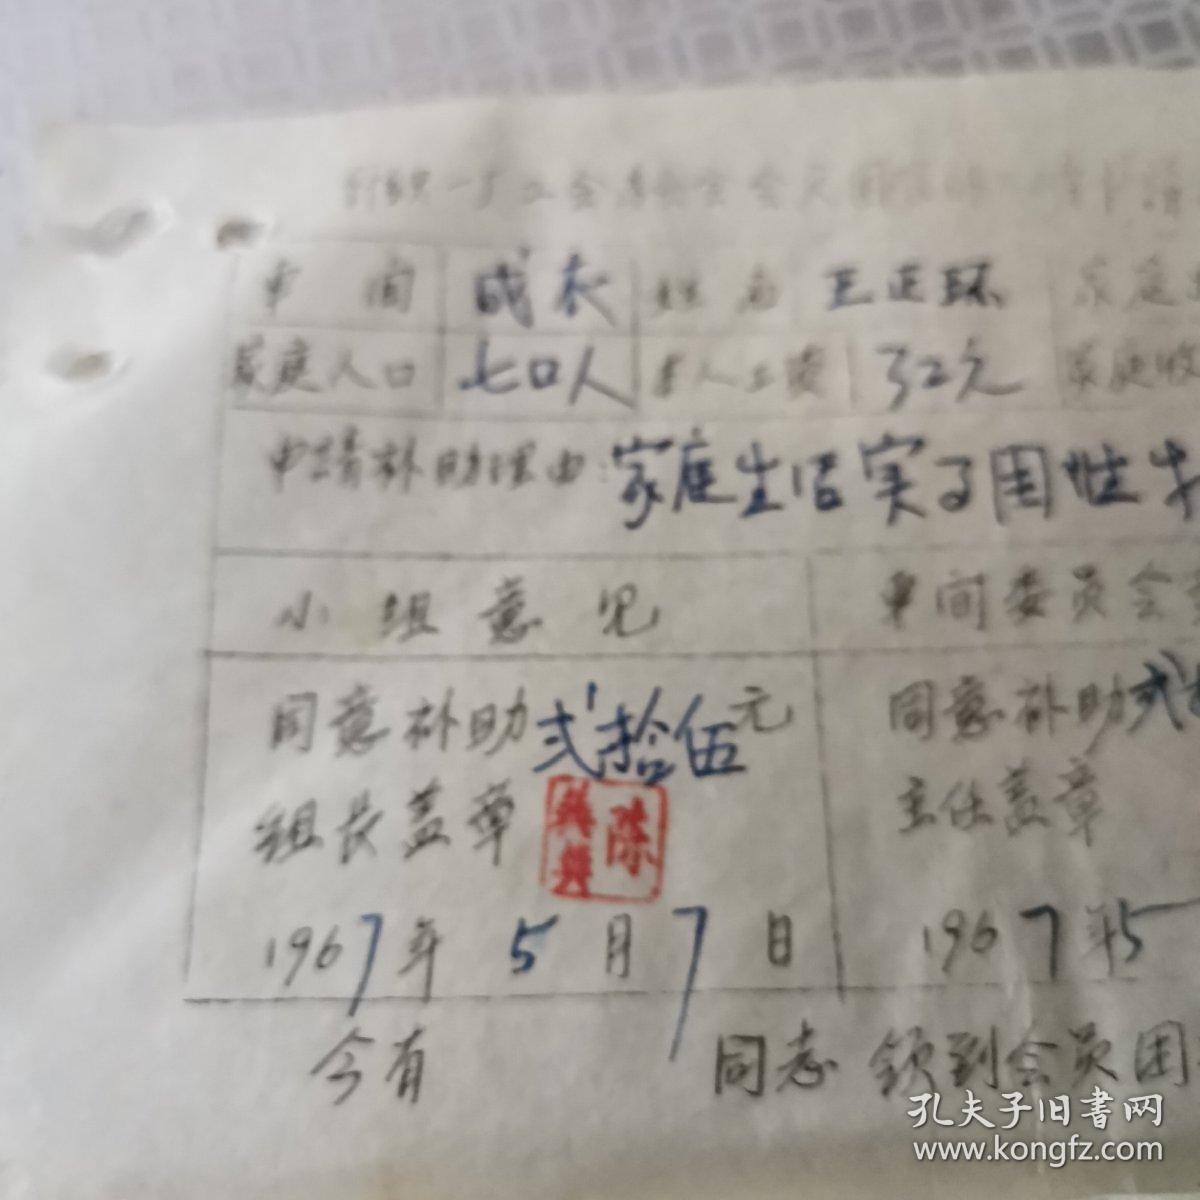 针织一厂工会委员会会员
车间 成衣 姓名 王正环 家庭
家庭人口 七口人 本人工资 32元 家庭收
申请补助理由：家庭生活实了困性
小组意见 车间委员会
同意补助弍拾伍元 同意补助弍
组长盖章 陈 主任盖章
1967年5月7日 1967年5
今有 同志 领到会员困
孔夫子旧书网
www.kongfz.com